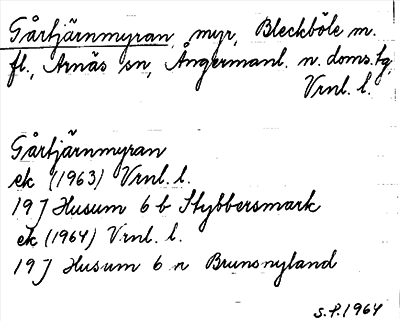 Gårtjärnmyran, myr, Bleckböle m.
fl., Arnäs sn, Ångermanl. n. doms. tg,
Vrnl. l.
Gårtjärnmyran
ek (1963) Vrnl. l.
19J Husum 6 b Stybbersmark
ek (1964) Vrnl. l.
19J Husum 6 n Brunsnyland
S.P. 1964